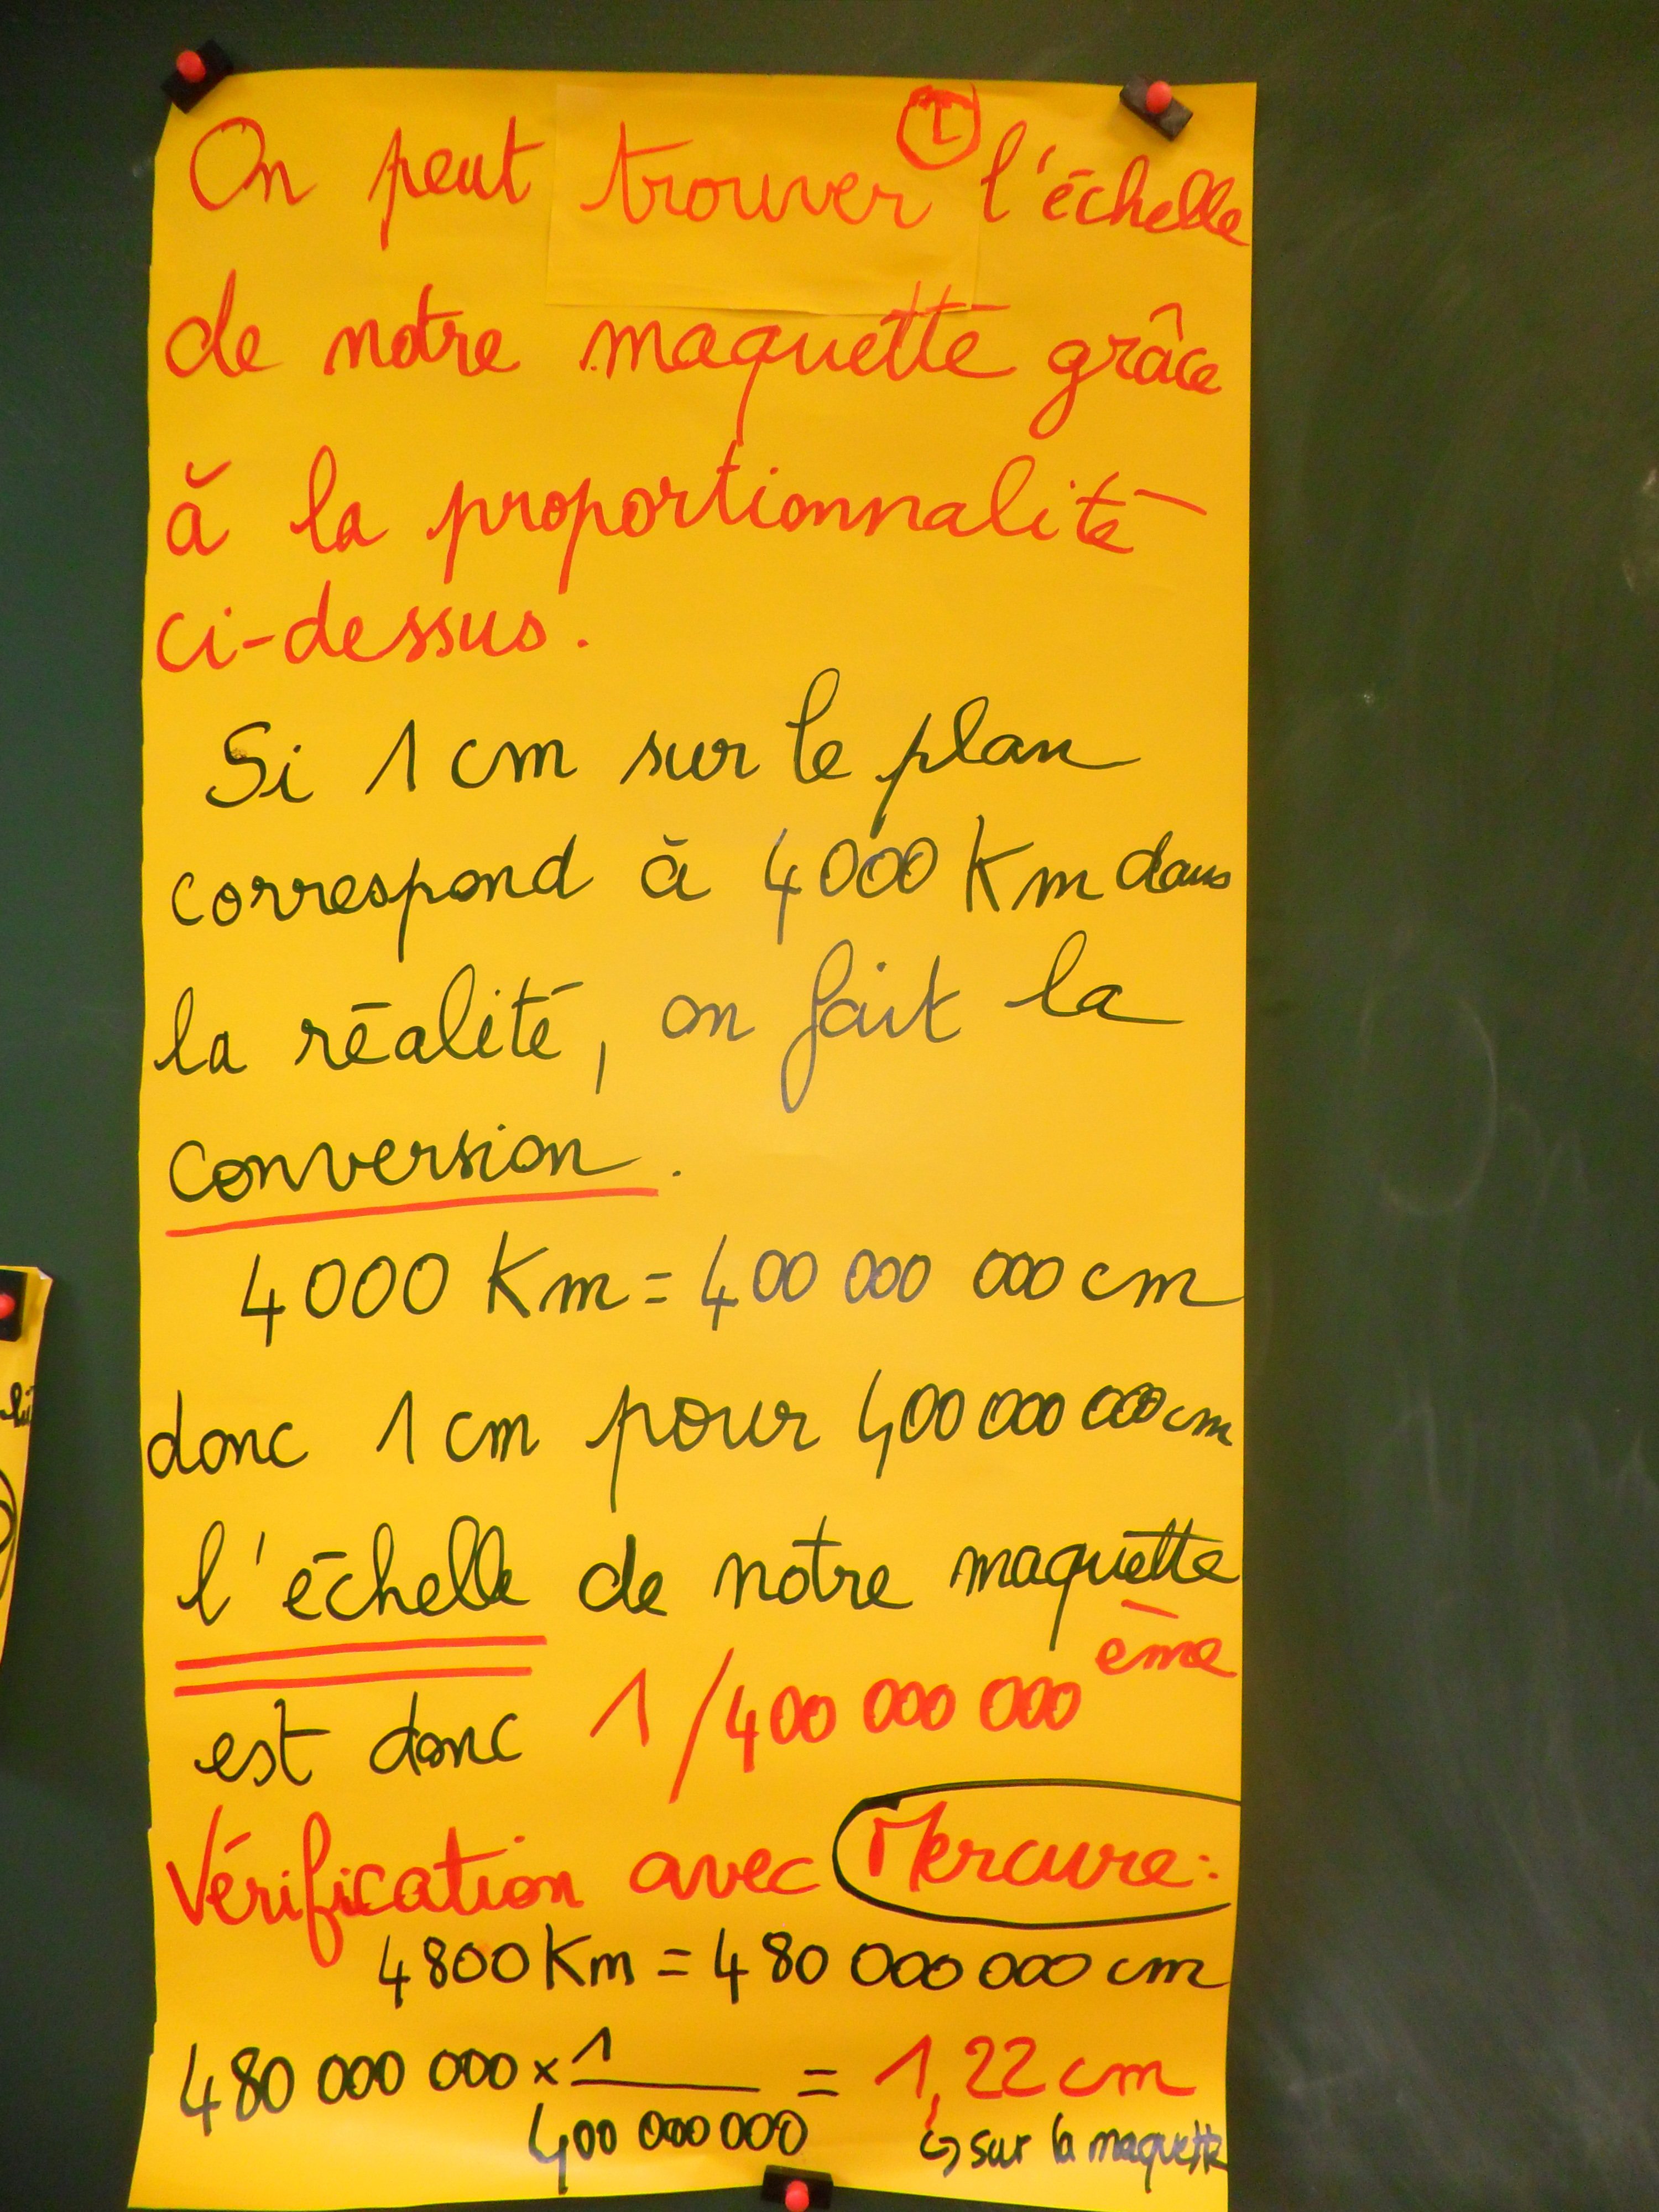 On peut trouver l'échelle
de notre maquette grâce
à la proportionnalité
ci-dessus.
Si 1 cm sur le plan
correspond à 4000 Km dans
la réalité, on fait la
conversion.
4000 Km = 400 000 000 cm
donc 1 cm pour 400 000 000 cm
l'échelle de notre maquette
est donc 1/400 000 000 ème
Vérification avec Mercure:
4800 Km = 480 000 000 cm
480 000 000 x 1 = 1,22 cm
400 000 000 ↳ sur la maquette